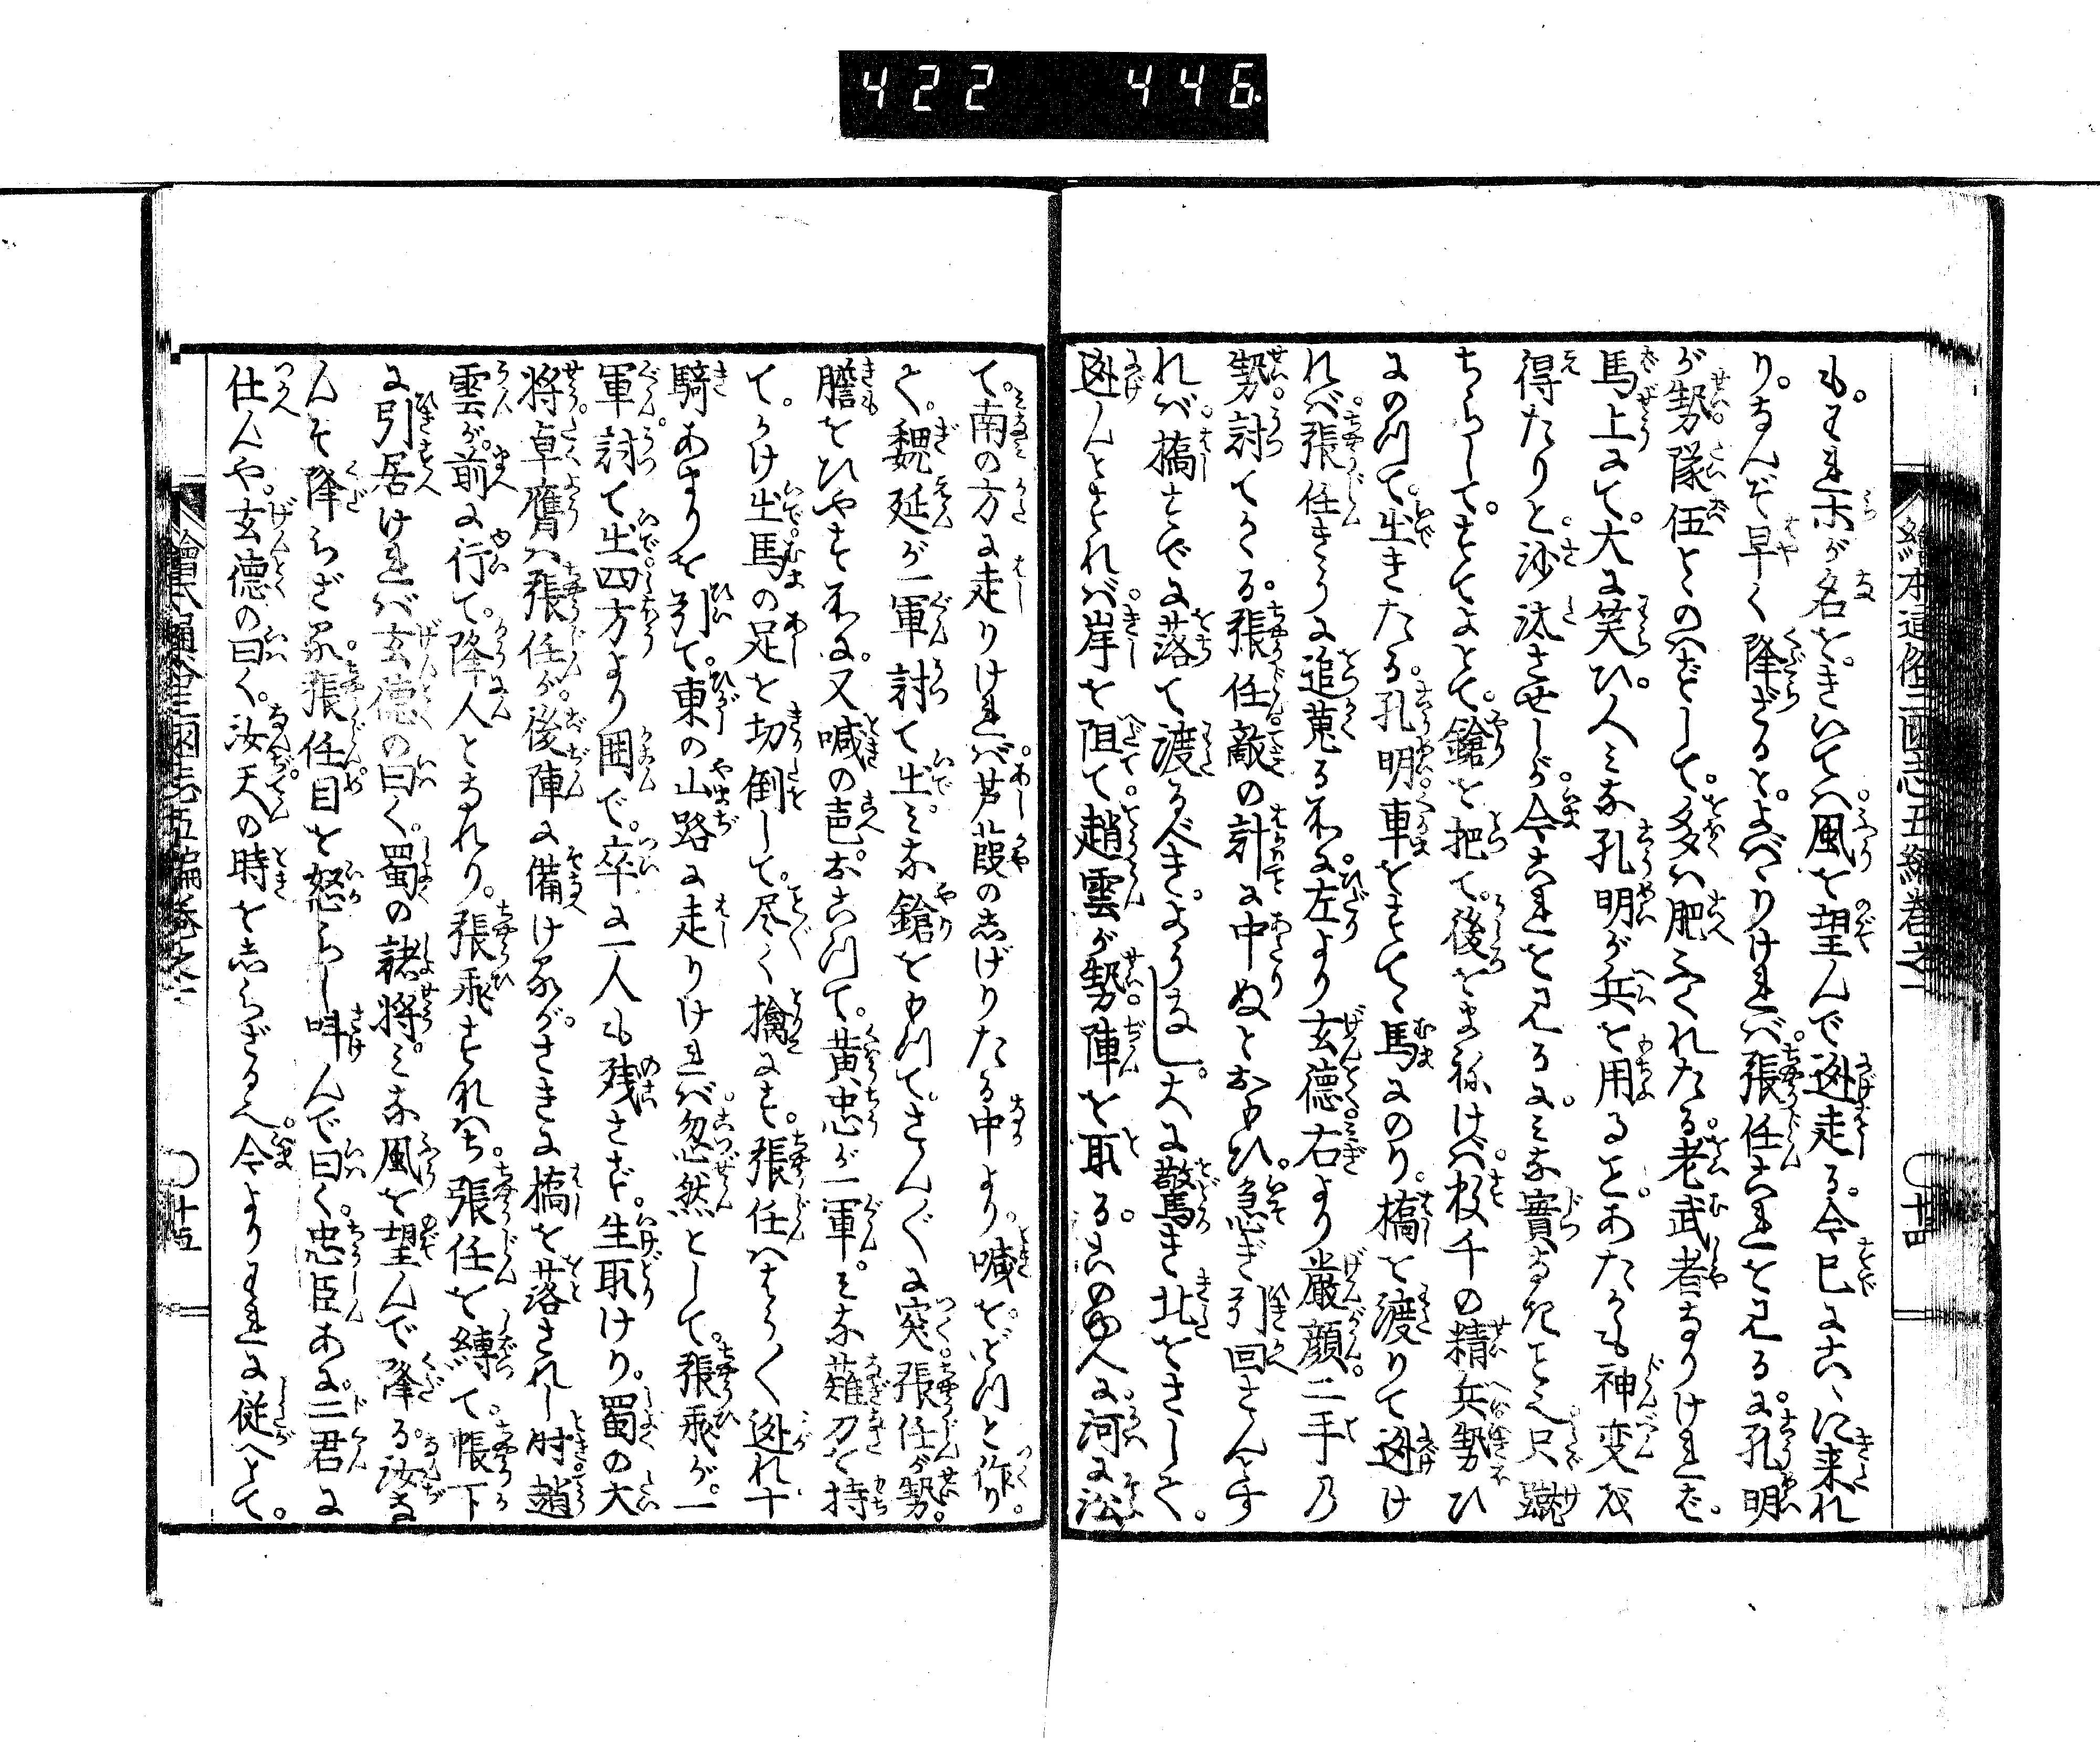 422 446
繪本通俗三國志五編卷之一 〇十四
も。われホが名をきいてハ風を望んで迯走る。今已にこゝに来れ
り。なんぞ早く降ざると。よべりければ張任これを見るに。孔明
が勢隊伍とゝのへずして。多ハ肥ふくれたる老武者なりけれど。
馬上にて。大に笑ひ。人ミな孔明が兵を用ると。あたかも神変を
得たりと沙汰させしが今これを見るに。ミな實なき〓と也只蹴
ちらして。すてよとて。鎗を把て。後をまねけバ数千の精兵勢ひ
にのつて。出きたる。孔明車をすてゝ馬にのり。橋を渡りて迯け
れバ張任きうに追蒐る所に左より玄德右より嚴顔二手乃
勢。討てくる。張任敵の計に中ぬとおもひ。急ぎ引回さんとす
れバ橋すでに落て渡るべきやうなし大に驚き北をさして。
迯んとすれバ岸を阻て趙雲が勢陣を取る。このゆへに河に沿
て。南の方に走りければ芦葭のしげりたる中より。喊をどつと作り。
て。魏延が一軍討て出。ミな鎗をもつて。さんぐに突。張任が勢。
膽をひやす所に。又喊の声おこつて。黄忠が一軍。ミな薙刀を持
て。かけ出馬の足を切倒して。尽く擒にす。張任ハやうく迯れ十
騎あまりを引て。東の山路に走りければ忽然として。張飛が一
軍討て出四方より囲で。卒に一人も残さず。生取けり。蜀の大
将卓膺ハ張任が後陣に備けるが。さきに橋を落されし時趙
雲が。前に行て。降人となれり。張飛すなハち。張任を縛て。帳下
に引居ければ玄德の曰く。蜀の諸将。ミな風を望んで降る。汝な
んぞ降らざる。張任目を怒らし呌んで曰く。忠臣あに二君に
仕んや。玄德の曰く。汝天の時をしらざるや。今よりわれに従へとて。
繪本通俗三國志五編卷之一 〇十五